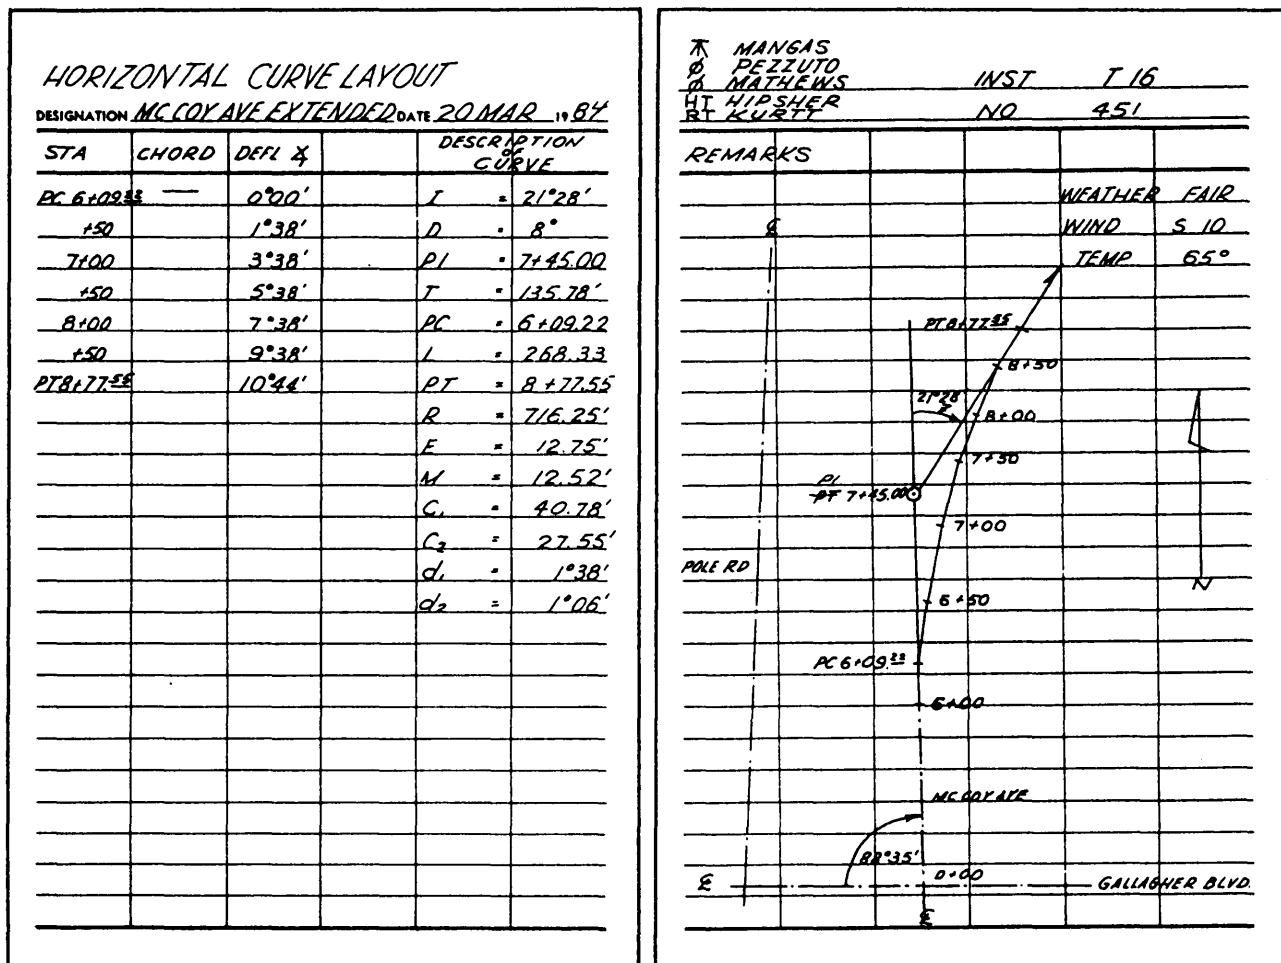 HORIZONTAL CURVE LAYOUT
DESIGNATION MC COY AVE EXTENDED DATE 20 MAR 1984
STA CHORD DEFL ∡ DESCRIPTION OF CURVE
PC 6+09.22 — 0°00' I = 21°28'
+50 1°38' D = 8°
7+00 3°38' PI = 7+45.00
+50 5°38' T = 135.78'
8+00 7°38' PC = 6+09.22
+50 9°38' L = 268.33
PT 8+77.55 10°44' PT = 8+77.55
R = 716.25'
E = 12.75'
M = 12.52'
C₁ = 40.78'
C₂ = 27.55'
d₁ = 1°38'
d₂ = 1°06'
⊼ MANGAS
φ PEZZUTO
φ MATHEWS INST T 16
HT HIPSHER
RT KURTT NO 451
REMARKS
WEATHER FAIR
℄ WIND S 10
TEMP 65°
PT 8+77.55
8+50
21°28'
I
8+00
7+50
PI
PT 7+45.00
7+00
POLE RD
N
6+50
PC 6+09.22
6+00
MC COY AVE
88°35'
0+00
℄ GALLAGHER BLVD.
℄